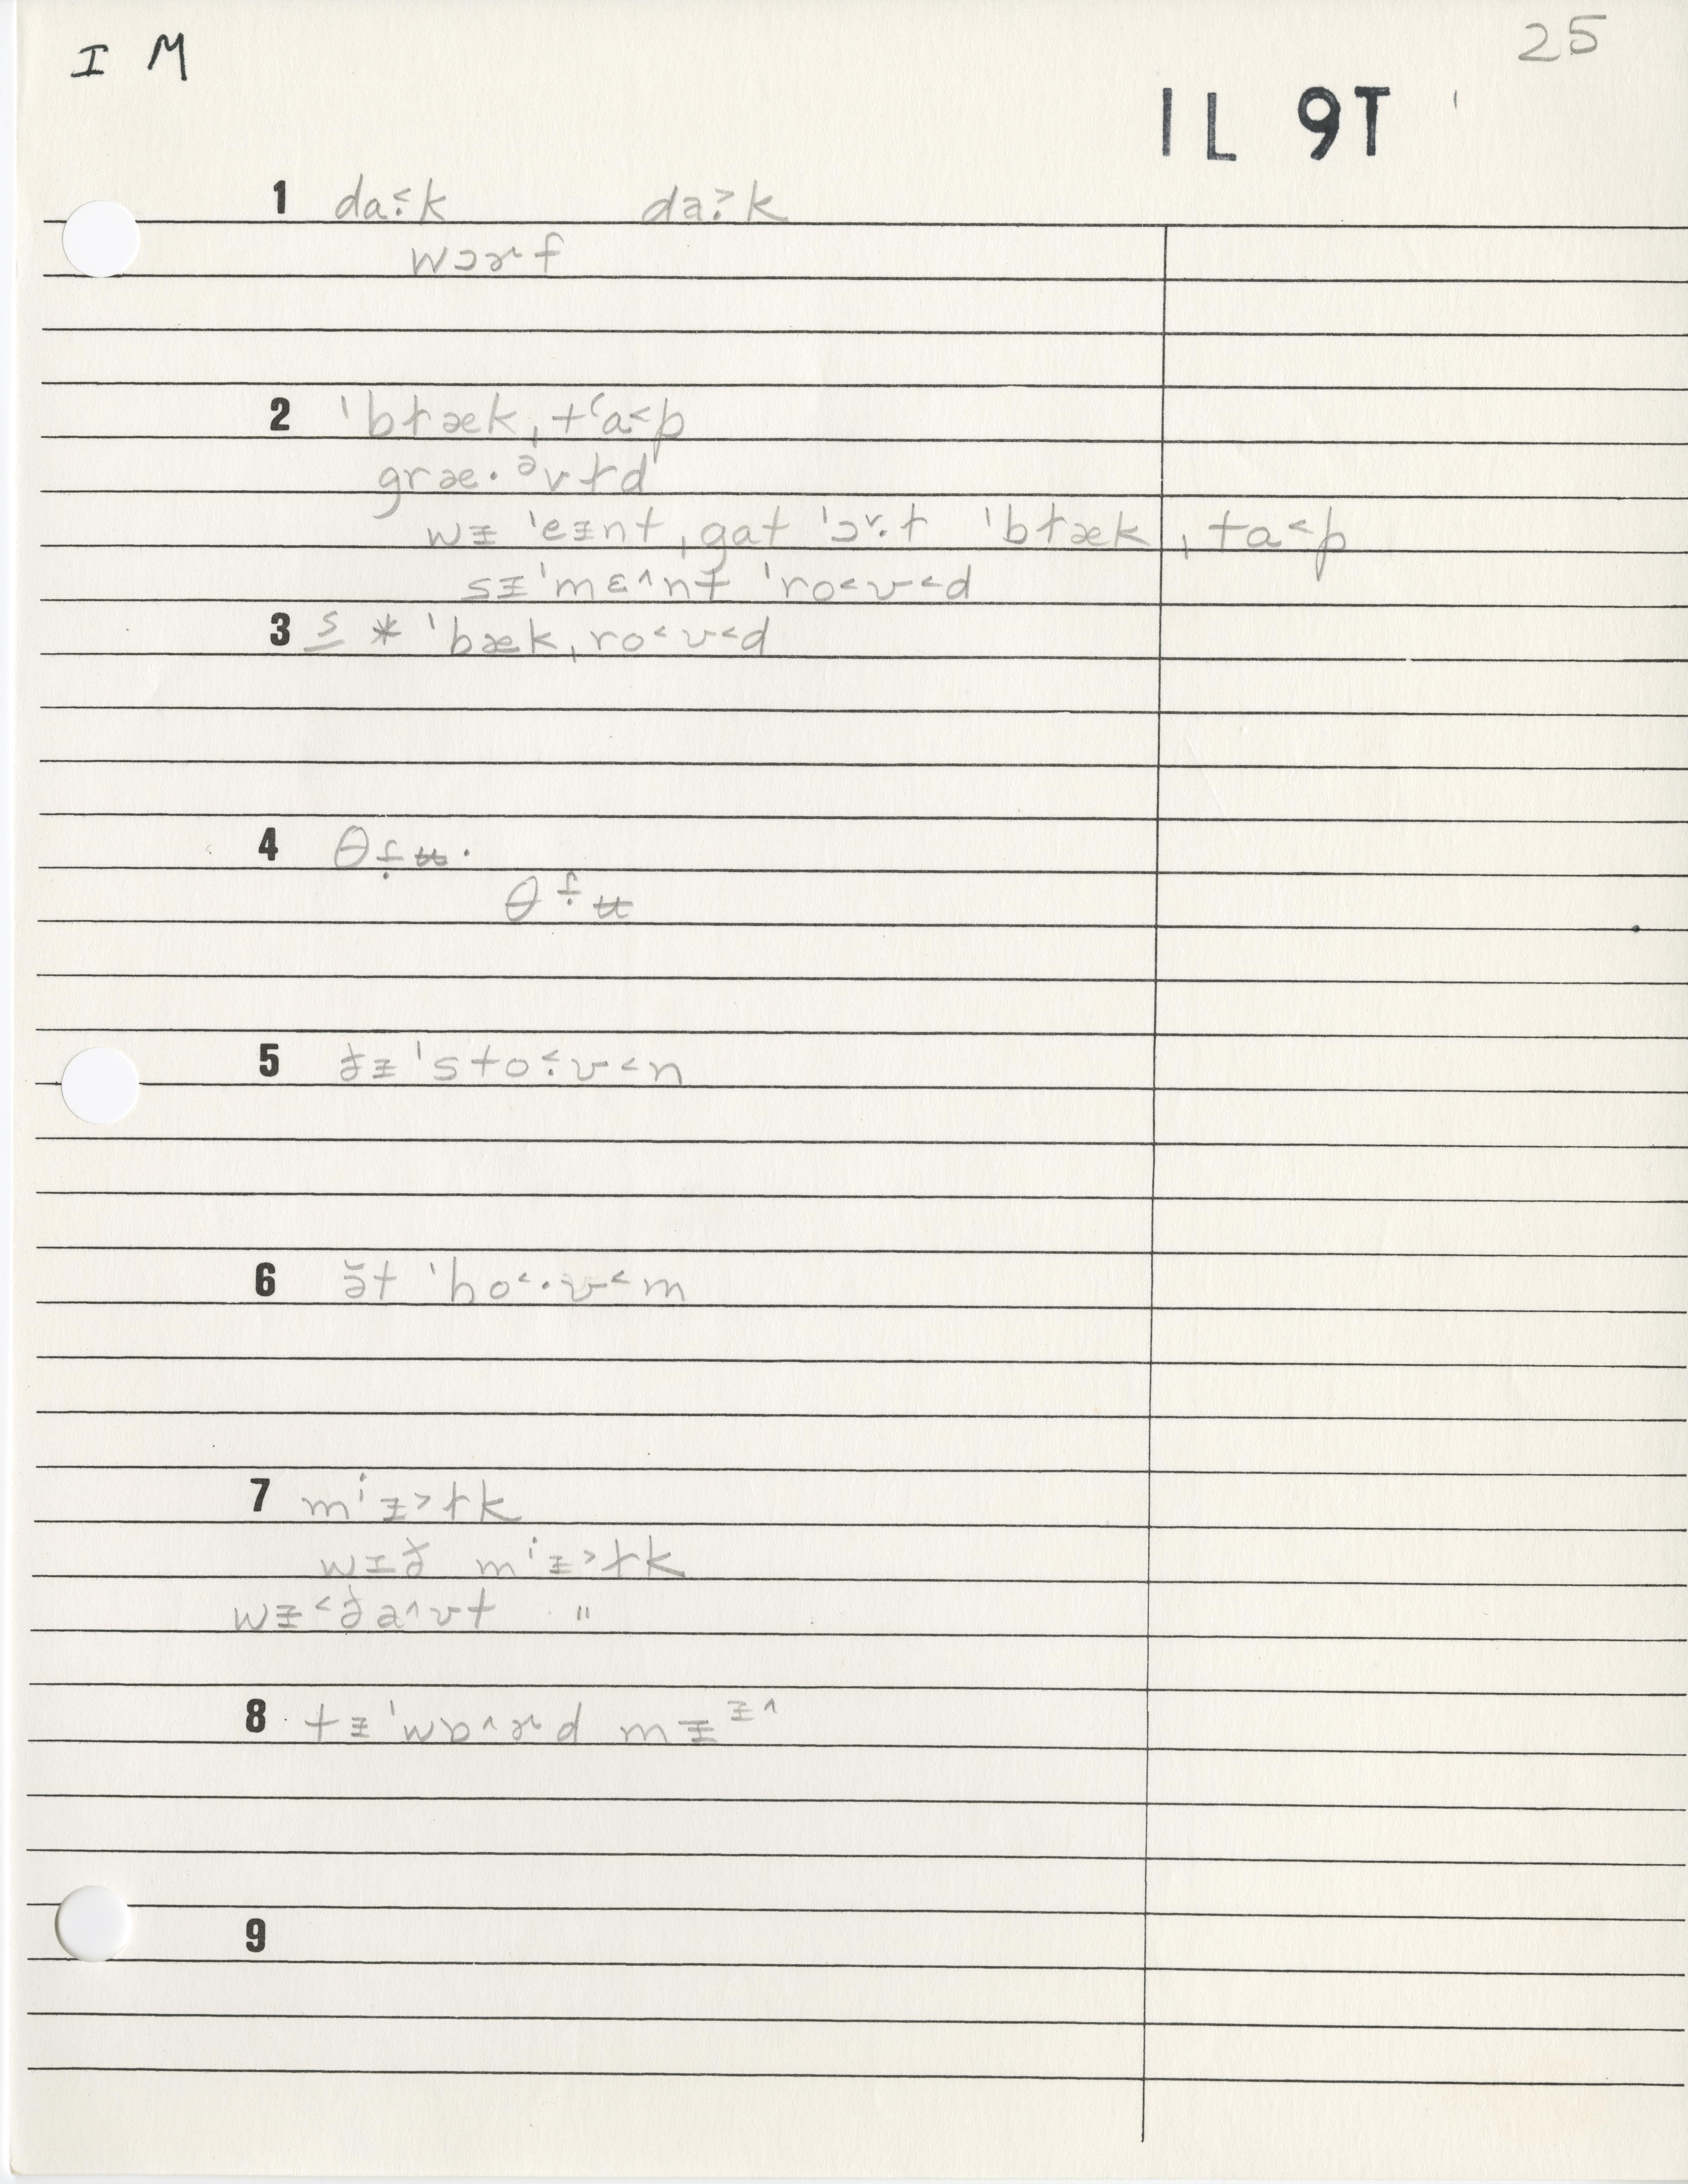 I M
25
1L 9T
1 da˂̣k da˃̣k
wɔɚf
2 ˈbɫækˌtʻa˂p
græ·ᵊvɫd
wᵻ ˈeᵻntˌgat ˈɔ˅̣ɫ ˈbɫækˌta˂p
sᵻˈmɛ˄nt ˈro˂ʊ˂d
3 s * ˈbækˌro˂ʊ˂d
4 θɾ̣ʉ·
θɾ̣ʉ
5 ðᵻ ˈsto˂̣ʊ˂n
6 ə̆t ˈho˂·ʊ˂m
7 mⁱᵻ˃ɫk
wɪð mⁱᵻ˃ɫk
wᵻ˂ða˄ʊt "
8 tᵻˈwɒ˄ɚd mᵻᵻ˄
9